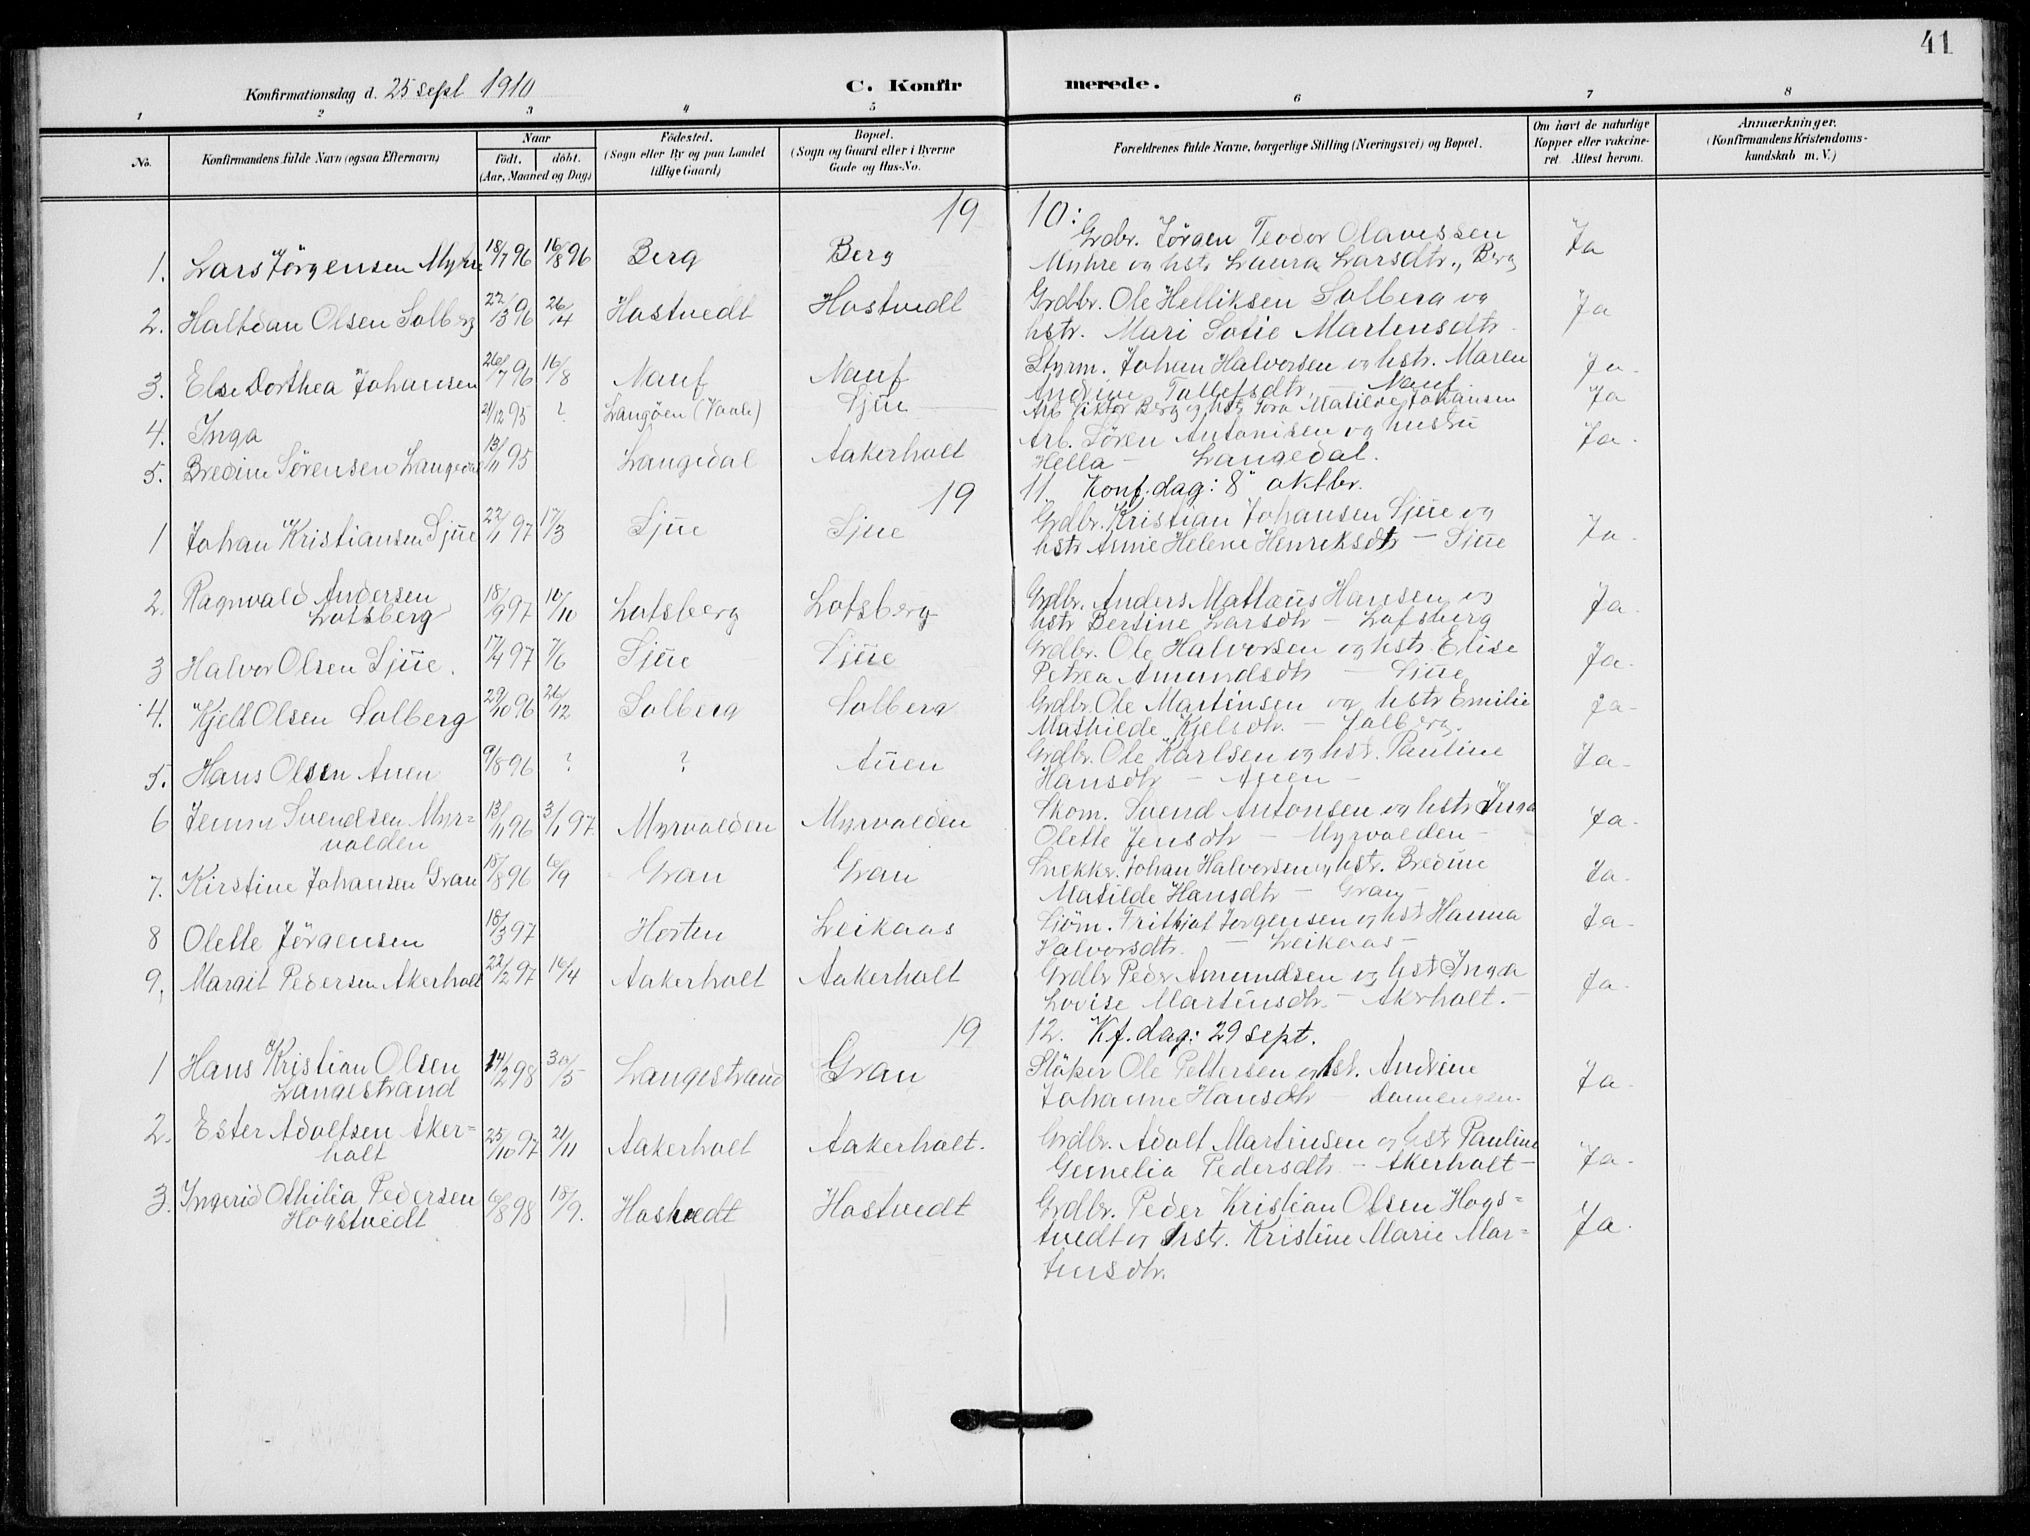 41
Konfirmationsdag d. 25 sept 1910
C. Konfirmerede.
1 2 3 4 5 6 7 8
No.
Konfirmandens fulde Navn (ogsaa Efternavn)
Naar
födt. döbt.
(Aar, Maaned og Dag)
Födested.
(Sogn eller By og paa Landet
tillige Gaard)
Bopæl.
(Sogn og Gaard eller i Byerne
Gade og Hus-No.
Forældrenes fulde Navne, borgerlige Stilling (Næringsvei) og Bopæl.
Om havt de naturlige
Kopper eller vakcine-
ret. Attest herom.
Anmærkninger.
(Konfirmandens Kristendoms-
kundskab m. V.)
19 10:
1. Lars Jörgensen Myhre 18/7 96 16/8 96 Berg Berg Grdbr. Jörgen Teodor Olavessen Ja
Myhre og hstr Laura Larsdtr., Berg
2. Halfdan Olsen Solberg 22/3 96 26/4 Hostvedt Hostvedt Grdbr. Ole Helliksen Solberg og Ja
hstr. Mari Sofie Martensdtr.
3. Else Dorthea Johansen 26/7 96 16/8 Nauf Nauf Styrm. Johan Halvorsen og hstr. Maren Ja
Andrine Tollefsdtr. — Nauf
4. Inga 21/12 95 ? Langöen (Vaale) Sjüe Arb. Viktor Berg og hstr Tora Matilde Johansen Ja
5. Bredine Sörensen Langedal 13/11 95 Langedal Aakerholt Arb. Sören Antonisen og hustru Ja
Hella — Langedal.
19 11. Konf. dag: 8 oktbr.
1 Johan Kristiansen Sjüe 22/1 97 17/3 Sjüe Sjüe Grdbr. Kristian Johansen Sjüe og Ja
hstr Anne Helene Henriksdtr — Sjüe
2. Ragnvald Andersen
Lofsberg 18/9 97 10/10 Lofsberg Lofsberg Grdbr. Anders Mattæus Hansen og Ja
hstr Bersine Larsdtr — Lofsberg
3 Halvor Olsen Sjüe. 17/4 97 7/6 Sjüe Sjüe Grdbr. Ole Halvorsen og hstr Elise Ja
Petrea Amundsdtr — Sjüe
4. Kjell Olsen Solberg 29/10 96 26/12 Solberg Solberg Grdbr. Ole Martinsen og hstr Emilie Ja
Mathilde Kjelsdtr. — Solberg.
5. Hans Olsen Auen 9/8 96 ? ? Auen Grdbr. Ole Karlsen og hst. Pauline Ja
Hansdtr — Auen —
6 Jenny Svendsen Myr-
volden 13/11 96 3/1 97 Myrvolden Myrvolden Skom. Svend Antonsen og hstr Inga Ja
Olette Jensdtr — Myrvolden —
7. Kirstine Johansen Gran 18/8 96 6/9 Gran Gran Snekker. Johan Halvorsen og hstr. Bredine Ja
Matilde Hansdtr — Gran —
8 Olette Jörgensen 18/3 97 Horten Leikaas Sjöm. Fritjof Jorgensen og hst Hanna Ja
Halvorsdtr. — Leikaas —
9. Margit Pedersen Akerholt 22/2 97 16/4 Aakerholt Aakerholt Grdbr Peder Amundsen og hstr Inga Ja
Lovise Martinsdtr. — Akerholt. —
19 12. Kf. dag: 29 sept.
1 Hans Kristian Olsen
Langestrand 14/2 98 30/5 Langestrand Gran Stöker Ole Pettersen og hst. Andrine Ja
Johanne Hansdtr — Damengen.
2. Ester Adolfsen Aker-
holt 25/10 97 21/11 Aakerholt Aakerholt. Grdbr. Adolf Martinsen og hstr Pauline Ja
Gemelia Pedersdtr — Akerholt —
3. Ingerid Othilia Pedersen
Hogstvedt 6/8 98 18/9. Hostvedt Hostvedt Grdbr. Peder Kristian Olsen Hogs= Ja
tvedt og hstr. Kristine Marie Mar=
tinsdtr.